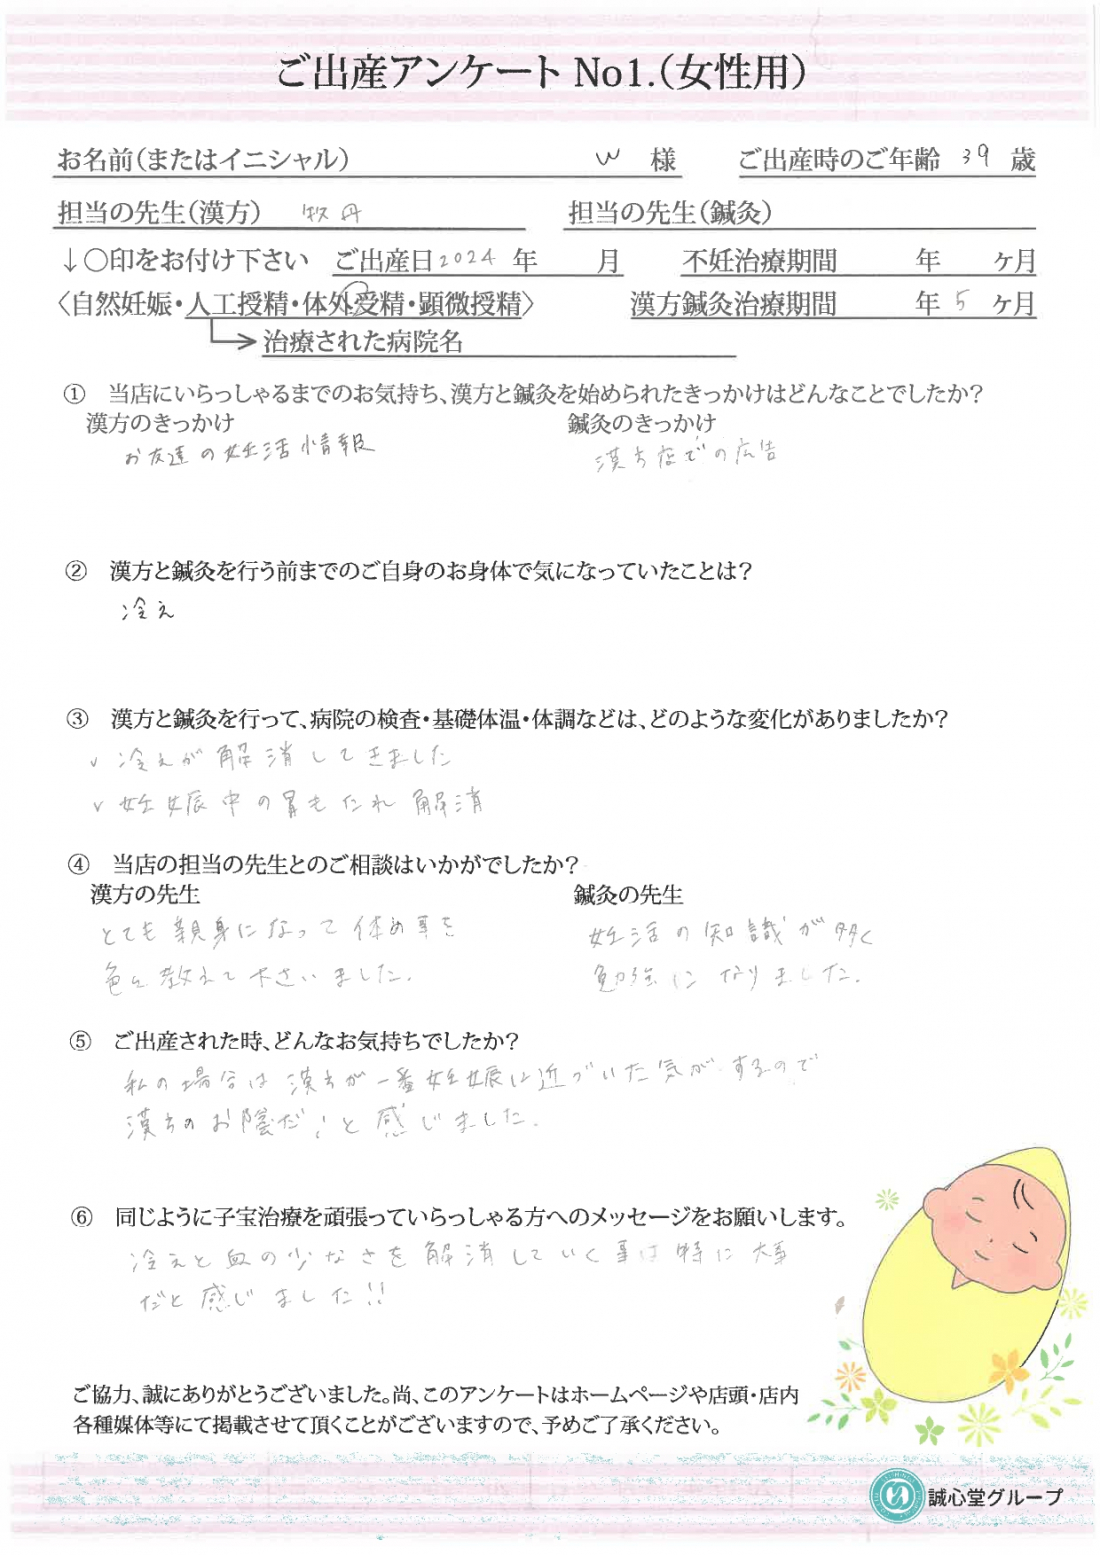 ご出産アンケート No1.(女性用)
お名前(またはイニシャル) W 様 ご出産時のご年齢 39 歳
担当の先生(漢方) 牧丹 担当の先生(鍼灸)
↓○印をお付け下さい ご出産日2024 年 月 不妊治療期間 年 ヶ月
〈自然妊娠・人工授精・体外受精・顕微授精〉 漢方鍼灸治療期間 年 5 ヶ月
治療された病院名
① 当店にいらっしゃるまでのお気持ち、漢方と鍼灸を始められたきっかけはどんなことでしたか?
漢方のきっかけ 鍼灸のきっかけ
お友達の妊活情報 漢方店での広告
② 漢方と鍼灸を行う前までのご自身のお身体で気になっていたことは?
冷え
③ 漢方と鍼灸を行って、病院の検査・基礎体温・体調などは、どのような変化がありましたか?
✓ 冷えが解消してきました
✓ 妊娠中の胃もたれ解消
④ 当店の担当の先生とのご相談はいかがでしたか?
漢方の先生 鍼灸の先生
とても親身になって体の事を 妊活の知識が多く
色々教えて下さいました. 勉強になりました.
⑤ ご出産された時、どんなお気持ちでしたか?
私の場合は漢方が一番妊娠に近づいた気がするので
漢方のお陰だ!と感じました.
⑥ 同じように子宝治療を頑張っていらっしゃる方へのメッセージをお願いします。
冷えと血の少なさを解消していく事は特に大事
だと感じました!!
ご協力、誠にありがとうございました。尚、このアンケートはホームページや店頭・店内
各種媒体等にて掲載させて頂くことがございますので、予めご了承ください。
誠心堂グループ